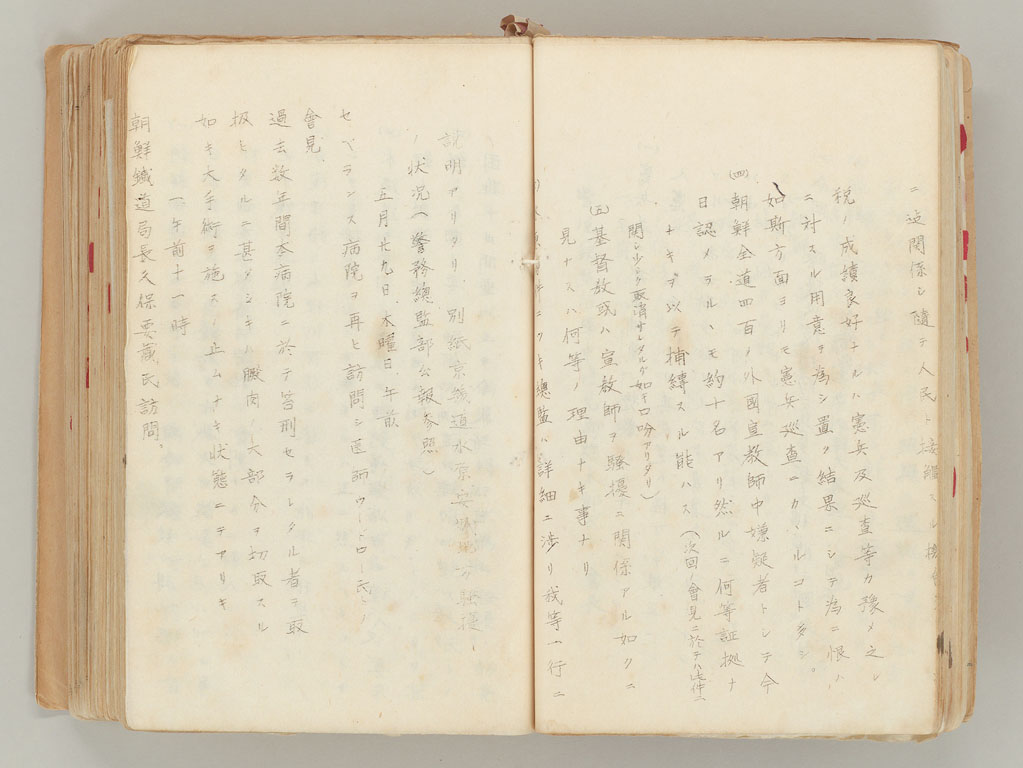 ニ 関係シ随テ人民ト接触スル
税ノ成績良好ナルハ憲兵及巡査等カ豫メ之レ
ニ対スル用意ヲ為シ置ク結果ニシテ為ニ恨ハ
如斯方面ヨリモ憲兵巡査ニカヽルコト多シ。
(四)朝鮮全道四百ノ外國宣教師中嫌疑者トシテ今
日認メラルヽモ約十名アリ然ルニ何等証拠ナ
ナキヲ以テ捕縛スル能ハス(次回ノ會見ニ於テハ此件ニ
関シ少シク取消サレタルガ如キ口吻アリタリ)
(五)基督教或ハ宣教師ヲ騒擾ニ関係アル如クニ
見ナスハ何等ノ理由ナキ事ナリ
ニツキ總監ハ詳細ニ渉リ我等一行ニ
説明アリタリ、別紙京畿道水原安城地方騒擾ノ
ノ状況(警務總監部公報参照)
五月廿九日、木曜日、午前
セベランス病院ヲ再ヒ訪問シ医師 氏ノ
會見、
過去数年間本病院ニ於テ笞刑セラレタル者ヲ取
扱ヒタルニ甚タシキハ臀肉ノ大部分ヲ切取スル
如キ大手術ヲ施スノ止ムナキ状態ニテアリキ
〃〃午前十一時
朝鮮鐵道局長久保要蔵氏訪問。